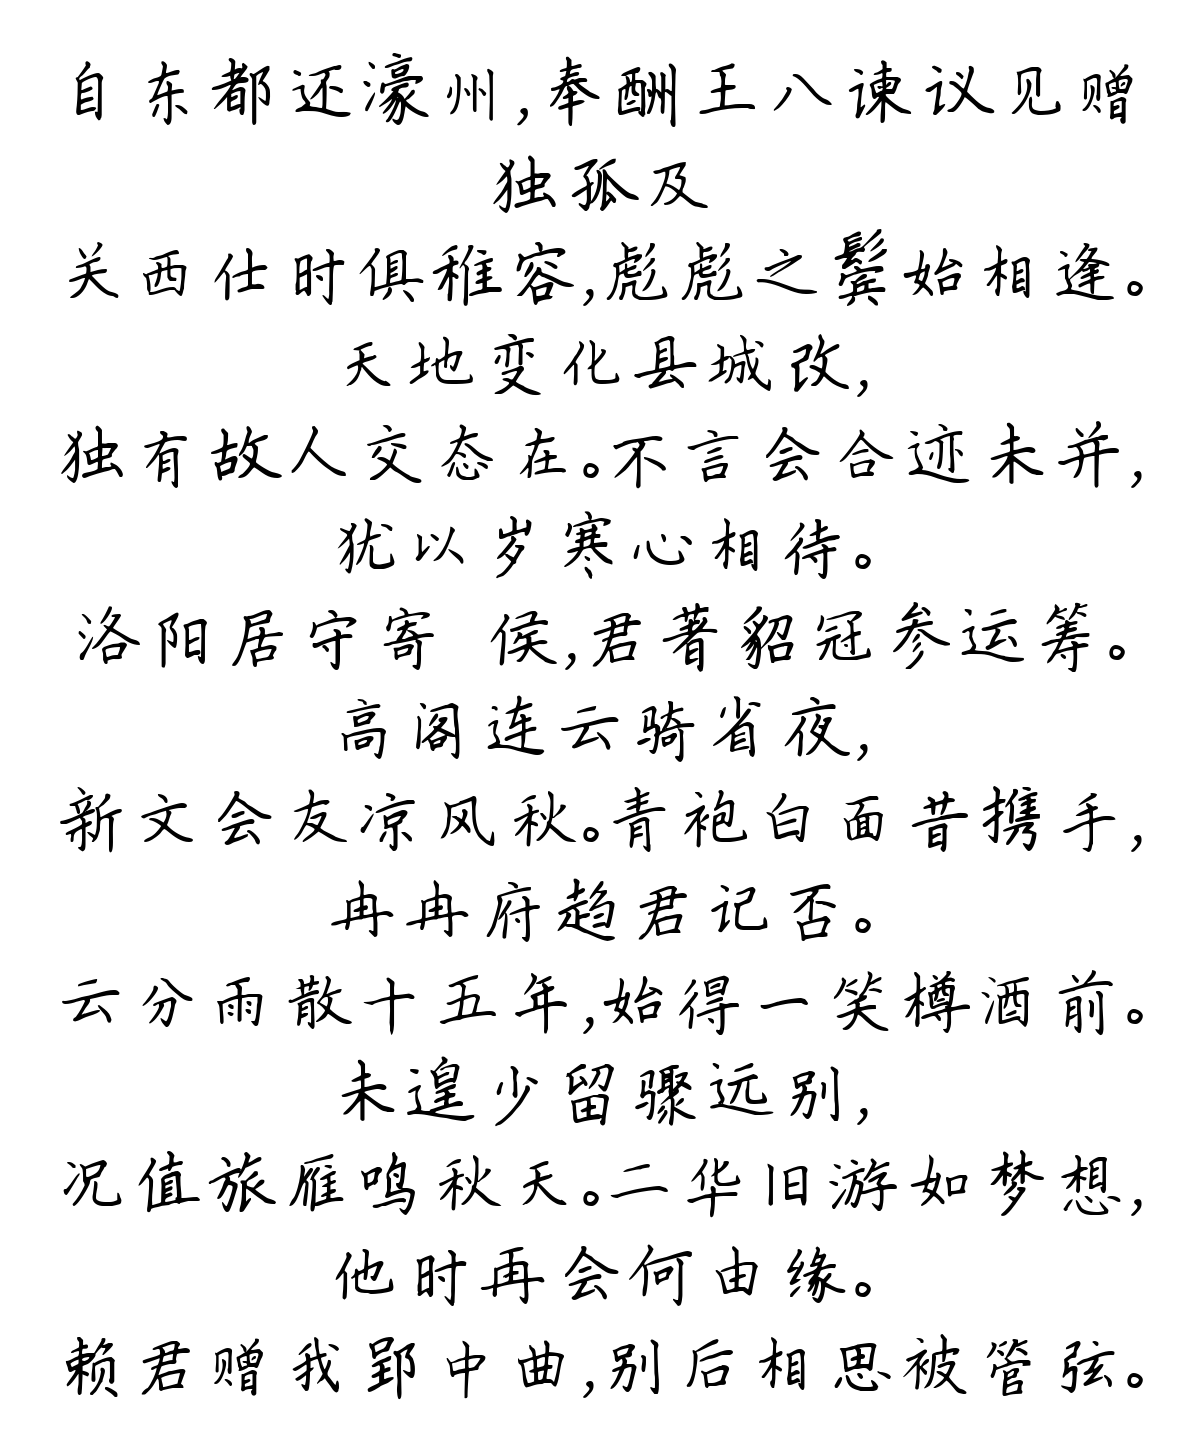 自东都还濠州,奉酬王八谏议见赠
独孤及
关西仕时俱稚容,彪彪之鬓始相逢。
天地变化县城改,
独有故人交态在。不言会合迹未并,
犹以岁寒心相待。
洛阳居守寄 侯,君著貂冠参运筹。
高阁连云骑省夜,
新文会友凉风秋。青袍白面昔携手,
冉冉府趋君记否。
云分雨散十五年,始得一笑樽酒前。
未遑少留骤远别,
况值旅雁鸣秋天。二华旧游如梦想,
他时再会何由缘。
赖君赠我郢中曲,别后相思被管弦。